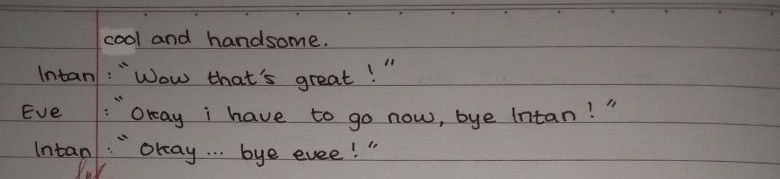 cool and handsome.
Intan : "Wow that's great !"
Eve : "Okay i have to go now, bye Intan ! "
Intan : "Okay ... bye evee ! "